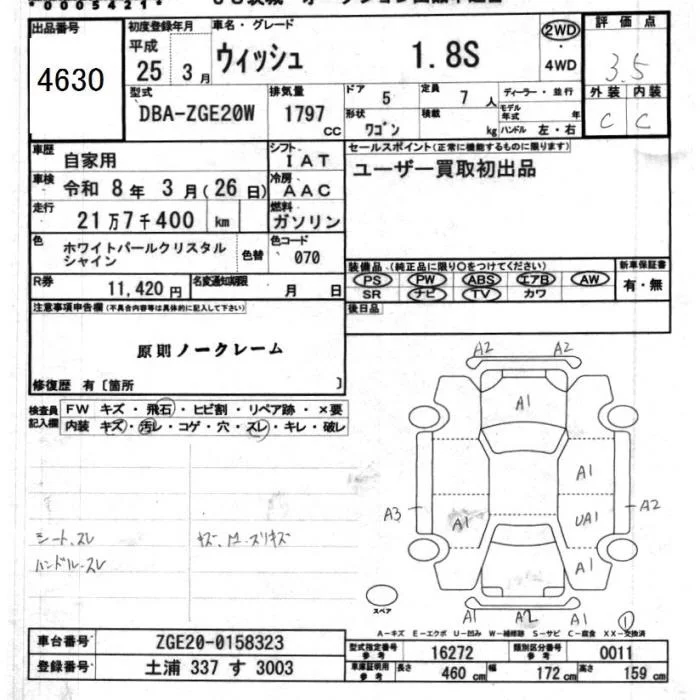 *0005421*
出品番号
4630
初度登録年月
平成
25 3月
車名・グレード
ウィッシュ 1.8S
2WD
・
4WD
評価点
3.5
外装 内装
C C
型式
DBA-ZGE20W
排気量
1797 cc
ドア 5
定員 7人
形状 ワゴン
積載 kg
ディーラー・並行
モデル年式 年
ハンドル 左・右
車歴 自家用
シフト IAT
車検 令和8年3月(26日)
冷房 AAC
走行 21万7千400 km
燃料 ガソリン
色 ホワイトパールクリスタルシャイン
色替
色コード 070
R券 11,420円
名変通知期限 月 日
セールスポイント(正常に機能するものに限ります)
ユーザー買取初出品
装備品(純正品に限り○をつけてください)
PS PW ABS エアB AW
SR ナビ TV カワ
新車保証書
有・無
後日品
注意事項申告欄(不具合内容等は具体的に記入して下さい)
原則ノークレーム
修復歴 有〔箇所 〕
検査員記入欄
FW キズ・飛石・ヒビ割・リペア跡・×要
内装 キズ・汚レ・コゲ・穴・スレ・キレ・破レ
シート、スレ
ハンドル・スレ
A2 A2
A1
A1
A3 A1 UA1 A2
A1
A1 A2 A1
①
スペア
A−キズ E−エクボ U−凹み W−補修跡 S−サビ C−腐食 XX−交換済
車台番号 ZGE20-0158323
登録番号 土浦 337 す 3003
型式指定番号 参考 16272
類別区分番号 参考 0011
車庫証明用 参考 長さ 460cm 幅 172cm 高さ 159cm